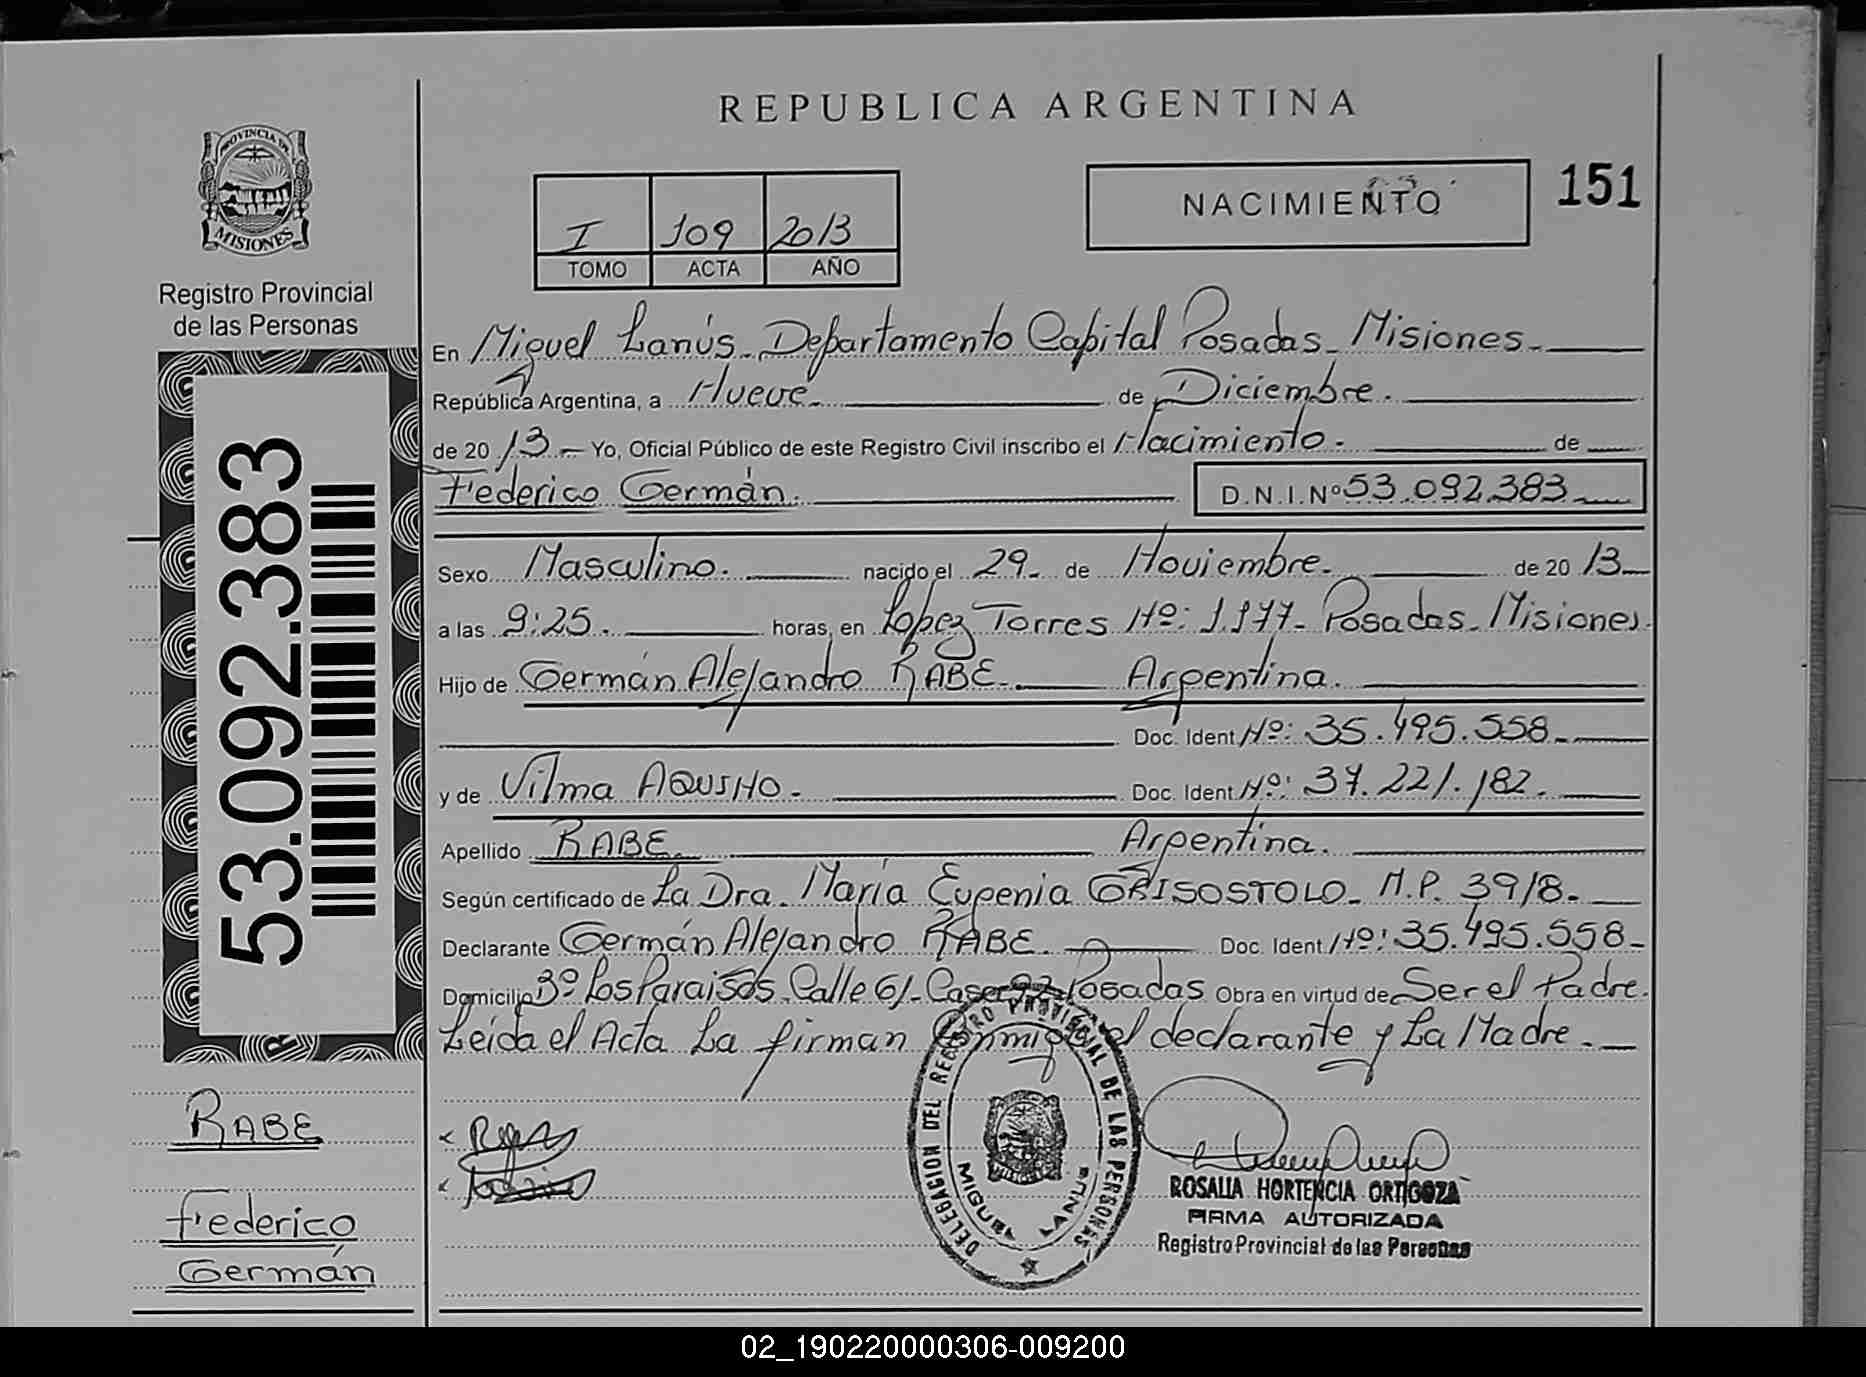 REPUBLICA ARGENTINA
PROVINCIA DE MISIONES
Registro Provincial
de las Personas
I 109 2013
TOMO ACTA AÑO
NACIMIENTO
151
En Miguel Lanús - Departamento Capital Posadas - Misiones -
República Argentina, a Nueve - de Diciembre.
de 2013 - Yo, Oficial Público de este Registro Civil inscribo el Nacimiento - de
Federico Germán. D.N.I.Nº 53.092.383
Sexo Masculino. nacido el 29 - de Noviembre - de 2013
a las 9:25. horas, en López Torres Nº: 1.177 - Posadas - Misiones.
Hijo de Germán Alejandro RABE - Argentina.
Doc. Ident Nº: 35.495.558 -
y de Vilma AQUINO - Doc. Ident Nº: 37.221.182.
Apellido RABE. Argentina.
Según certificado de La Dra. María Eugenia GRISOSTOLO - M.P. 3918 -
Declarante Germán Alejandro RABE. Doc. Ident Nº: 35.495.558 -
Domicilio Bº Los Paraisos - Calle 61 - Casa 92 Posadas Obra en virtud de Ser el Padre.
Leída el Acta La firman Conmigo el declarante y La Madre. -
53.092.383
RABE
Federico
Germán
DELEGACION DEL REGISTRO PROVINCIAL DE LAS PERSONAS
MIGUEL LANUS
ROSALIA HORTENCIA ORTIGOZA
FIRMA AUTORIZADA
Registro Provincial de las Personas
02_190220000306-009200